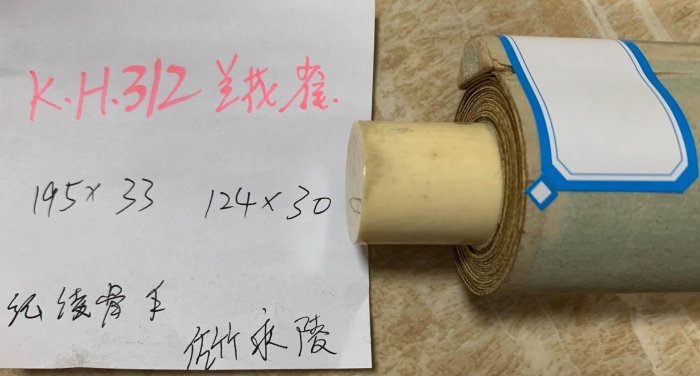 K.H.312 兰找崖.
195×33 124×30
纸绫骨手
佐竹永陵